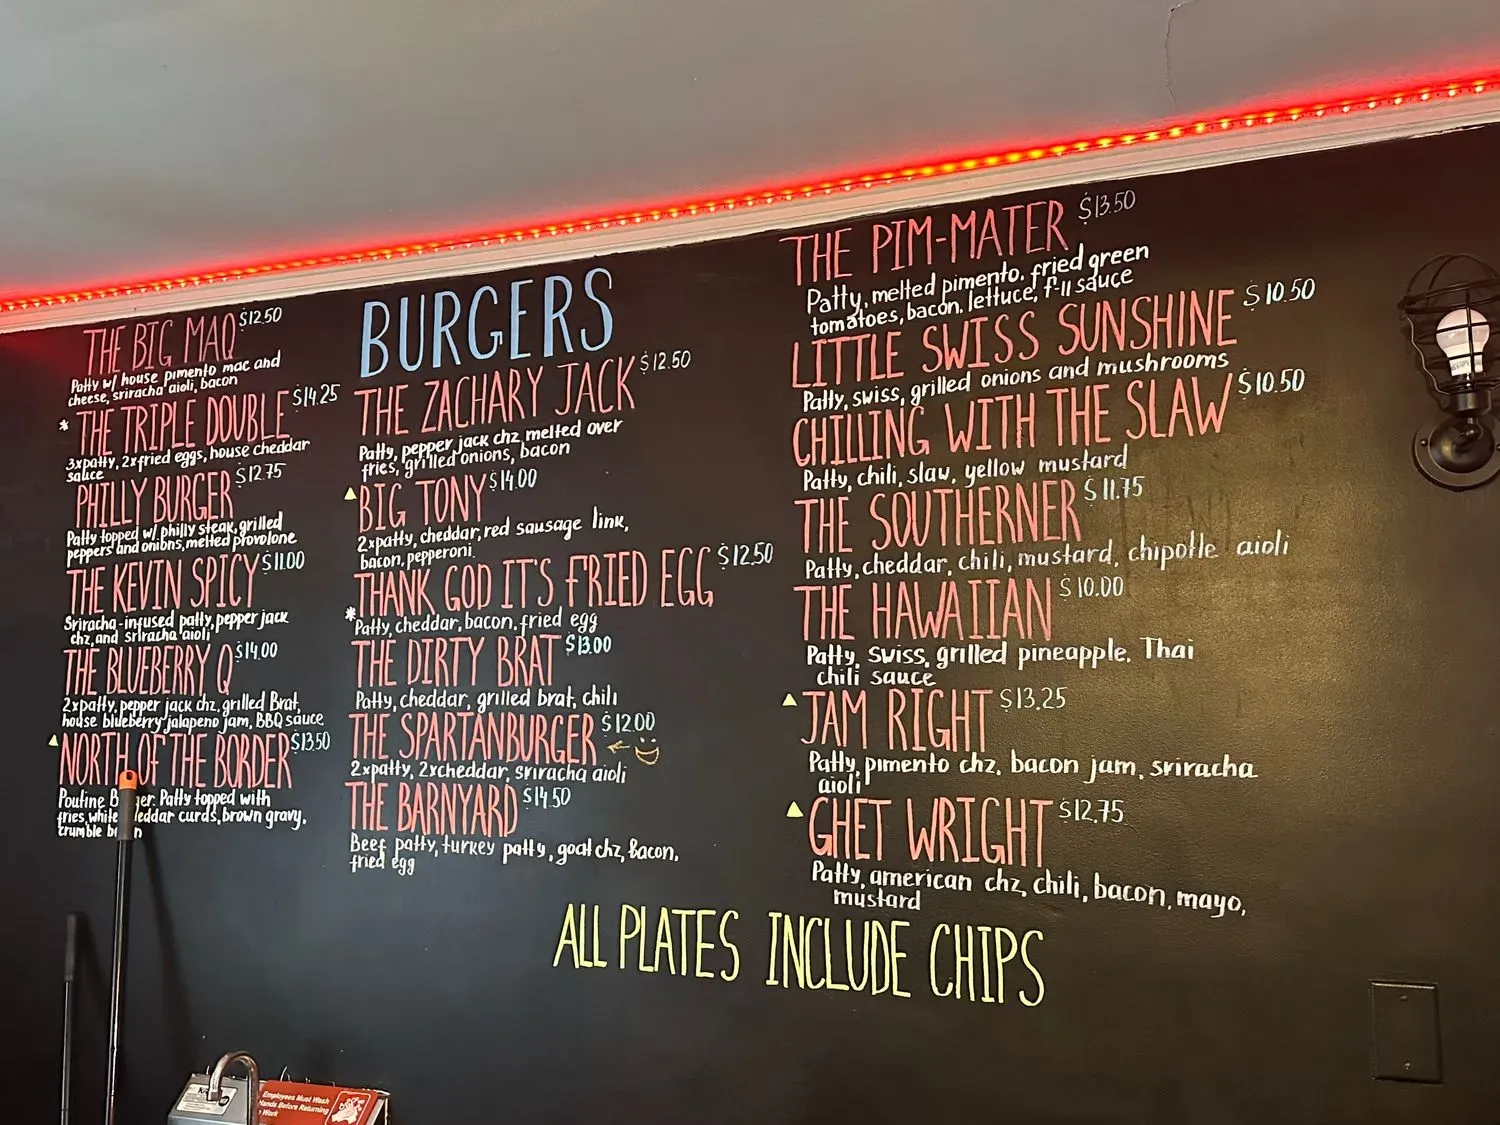 THE BIG MAQ $12.50
Patty w/ house pimento mac and
cheese, sriracha aioli, bacon
* THE TRIPLE DOUBLE $14.25
3xpatty, 2xfried eggs, house cheddar
sauce
PHILLY BURGER $12.75
Patty topped w/ philly steak, grilled
peppers and onions, melted provolone
THE KEVIN SPICY $11.00
Sriracha-infused patty, pepper jack
chz, and sriracha aioli
THE BLUEBERRY Q $14.00
2xpatty, pepper jack chz, grilled Brat,
house blueberry jalapeno jam, BBQ sauce
NORTH OF THE BORDER $13.50
Poutine B ger: Patty topped with
fries, white eddar curds, brown gravy,
crumble b n
BURGERS
THE ZACHARY JACK $12.50
Patty, pepper jack chz, melted over
fries, grilled onions, bacon
BIG TONY $14.00
2xpatty, cheddar, red sausage link,
bacon, pepperoni
THANK GOD IT'S FRIED EGG $12.50
* Patty, cheddar, bacon, fried egg
THE DIRTY BRAT $13.00
Patty, cheddar, grilled brat, chili
THE SPARTANBURGER $12.00
2xpatty, 2xcheddar, sriracha aioli
THE BARNYARD $14.50
Beef patty, turkey patty, goat chz, Bacon,
fried egg
THE PIM-MATER $13.50
Patty, melted pimento, fried green
tomatoes, bacon, lettuce, f-11 sauce
LITTLE SWISS SUNSHINE $10.50
Patty, swiss, grilled onions and mushrooms
CHILLING WITH THE SLAW $10.50
Patty, chili, slaw, yellow mustard
THE SOUTHERNER $11.75
Patty, cheddar, chili, mustard, chipotle aioli
THE HAWAIIAN $10.00
Patty, swiss, grilled pineapple, Thai
chili sauce
JAM RIGHT $13.25
Patty, pimento chz, bacon jam, sriracha
aioli
GHET WRIGHT $12.75
Patty, american chz, chili, bacon, mayo,
mustard
ALL PLATES INCLUDE CHIPS
Employees Must Wash
Hands Before Returning
Work